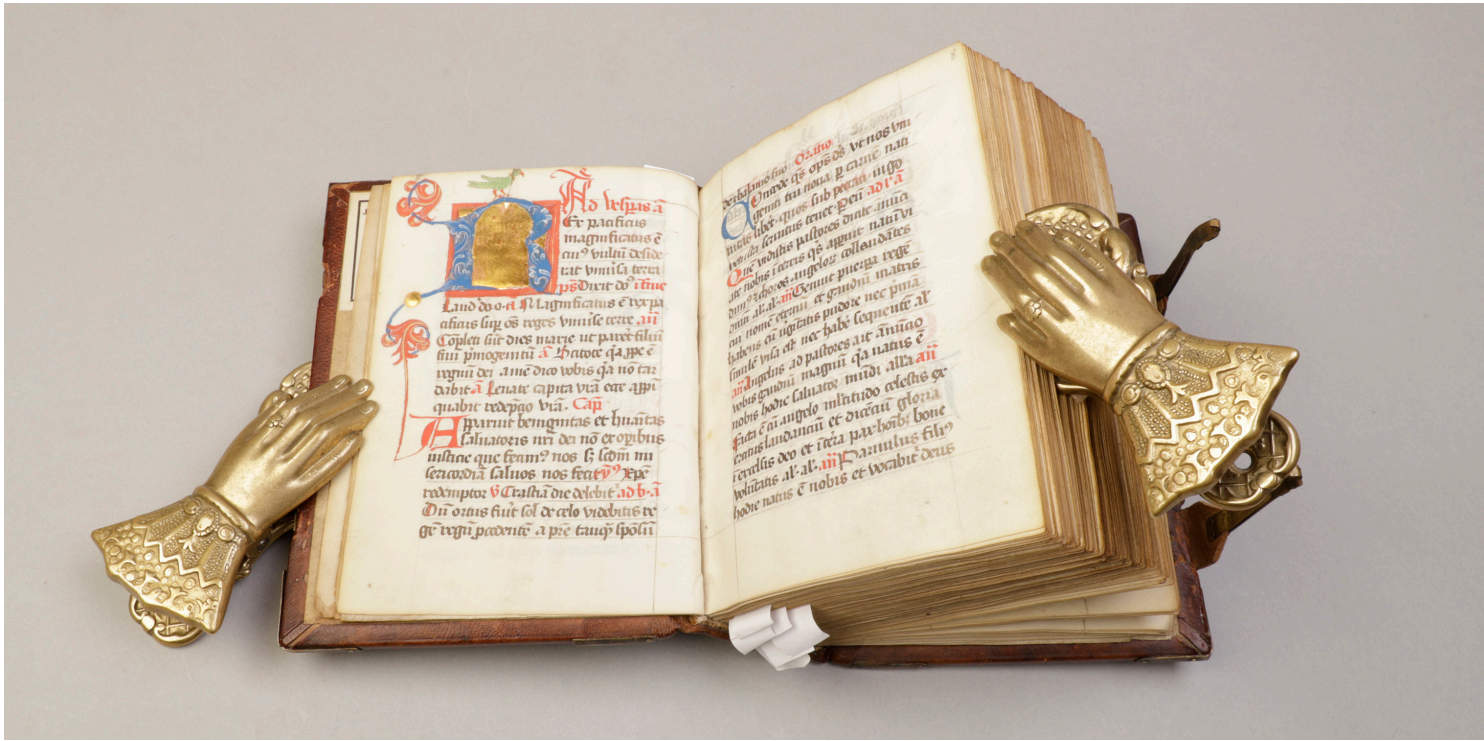 Ad vesꝑas a̅
Rex pacificus
magnificatus ē
cuiꝰ vultū deside
rat vniu̓sa terra
ps̄ Dixit dn̄s
Magnificatus ē rex pa
cificus suꝑ os̄ reges vniu̓se terre an̄
Cōpleti sūt dies marie ut pareret filiū
suū pͥmogenitū a̅ Scitote qa ꝓpe ē
regnū dei amē dico vobis qa nō tar
dabit a̅ Leuate capita vr̄a ecce appͥ
quabit redēpcio vr̄a. Capͫ
Apparuit benignitas et hūanitas
saluatoris nr̄i dei nō ex oꝑibus
iusticie que fecimꝰ nos sꝫ scdm̄ mi
sericordiā saluos nos fecit xpē
redemptor v̄ Crastīa die delebit᷑ ad b a̅
Cū ortus fūit sol de celo videbitis re
gē regū ꝓcedentē a pr̄e tāqꝫ spōsū
de thalamo suo Oratio
Concede qs om̄ps ds̄ vt nos vni
geniti tui noua ꝑ carnē nati
uitas liberet quos sub peccati iugo
vetusta seruitus tenet
Quē vidistis pastores dicite ānūci
ate nobis ī terris qs̄ apparuit natū vi
dimꝰ ⁊ choros angeloꝝ collaudātes
dnm̄ al̄ al̄ an̄ Genuit puerpa regē
cui nomē eternū et gaudiū matris
habens cū v̓gītatis pudore nec pͥmā
similē visa est nec habē sequentē al̄
an̄ Angelus ad pastores ait ānūcio
vobis gaudiū magnū qa natus ē
nobis hodie saluator mūdi all̄a an̄
Facta ē cū angelo ml̄titudo celestis ex
ercitus laudanciū et dicēciū gloria
ī excelsis deo et ī terra pax hoībꝫ bone
volūtatis al̄ al̄ an̄ Paruulus filiꝰ
hodie natus ē nobis et vocabit᷑ deus